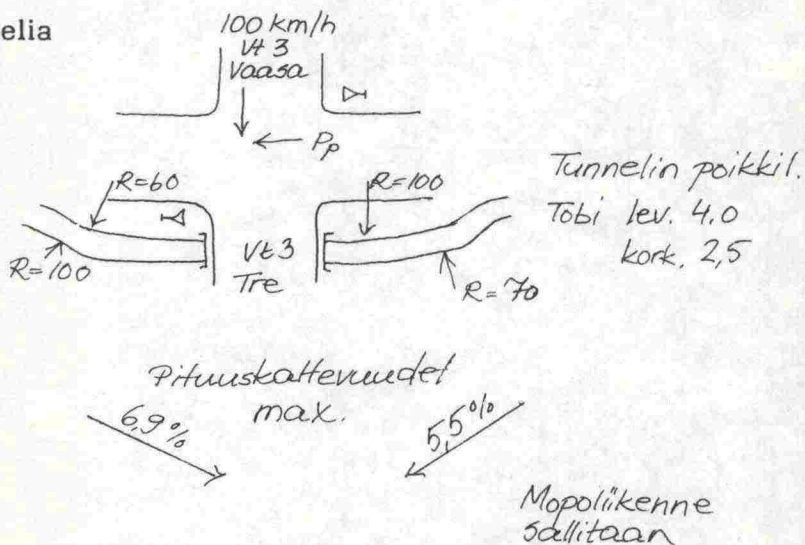 elia
100 km/h
Vt 3
Vaasa
Pp
R=60
R=100
R=100
Vt 3
Tre
R=70
Tunnelin poikkil.
Tobi lev. 4.0
kork. 2,5
Pituuskaltevuudet
max.
6,9%
5,5%
Mopoliikenne
sallitaan